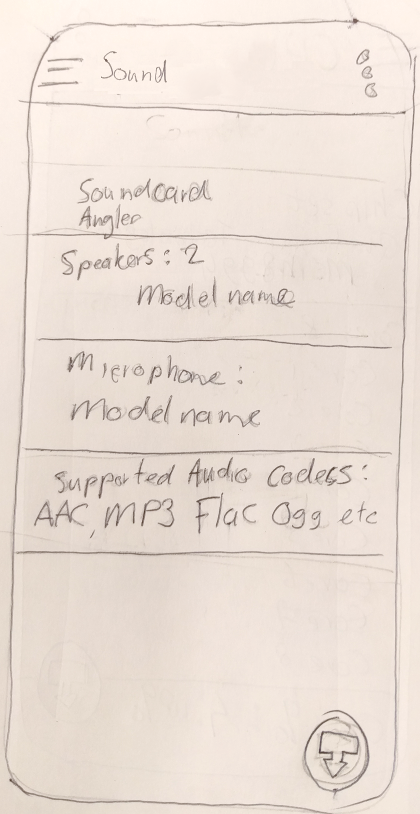 Sound
Soundcard
Angler
Speakers: 2
Model name
Microphone:
Model name
Supported Audio Codecs:
AAC, MP3 Flac Ogg etc